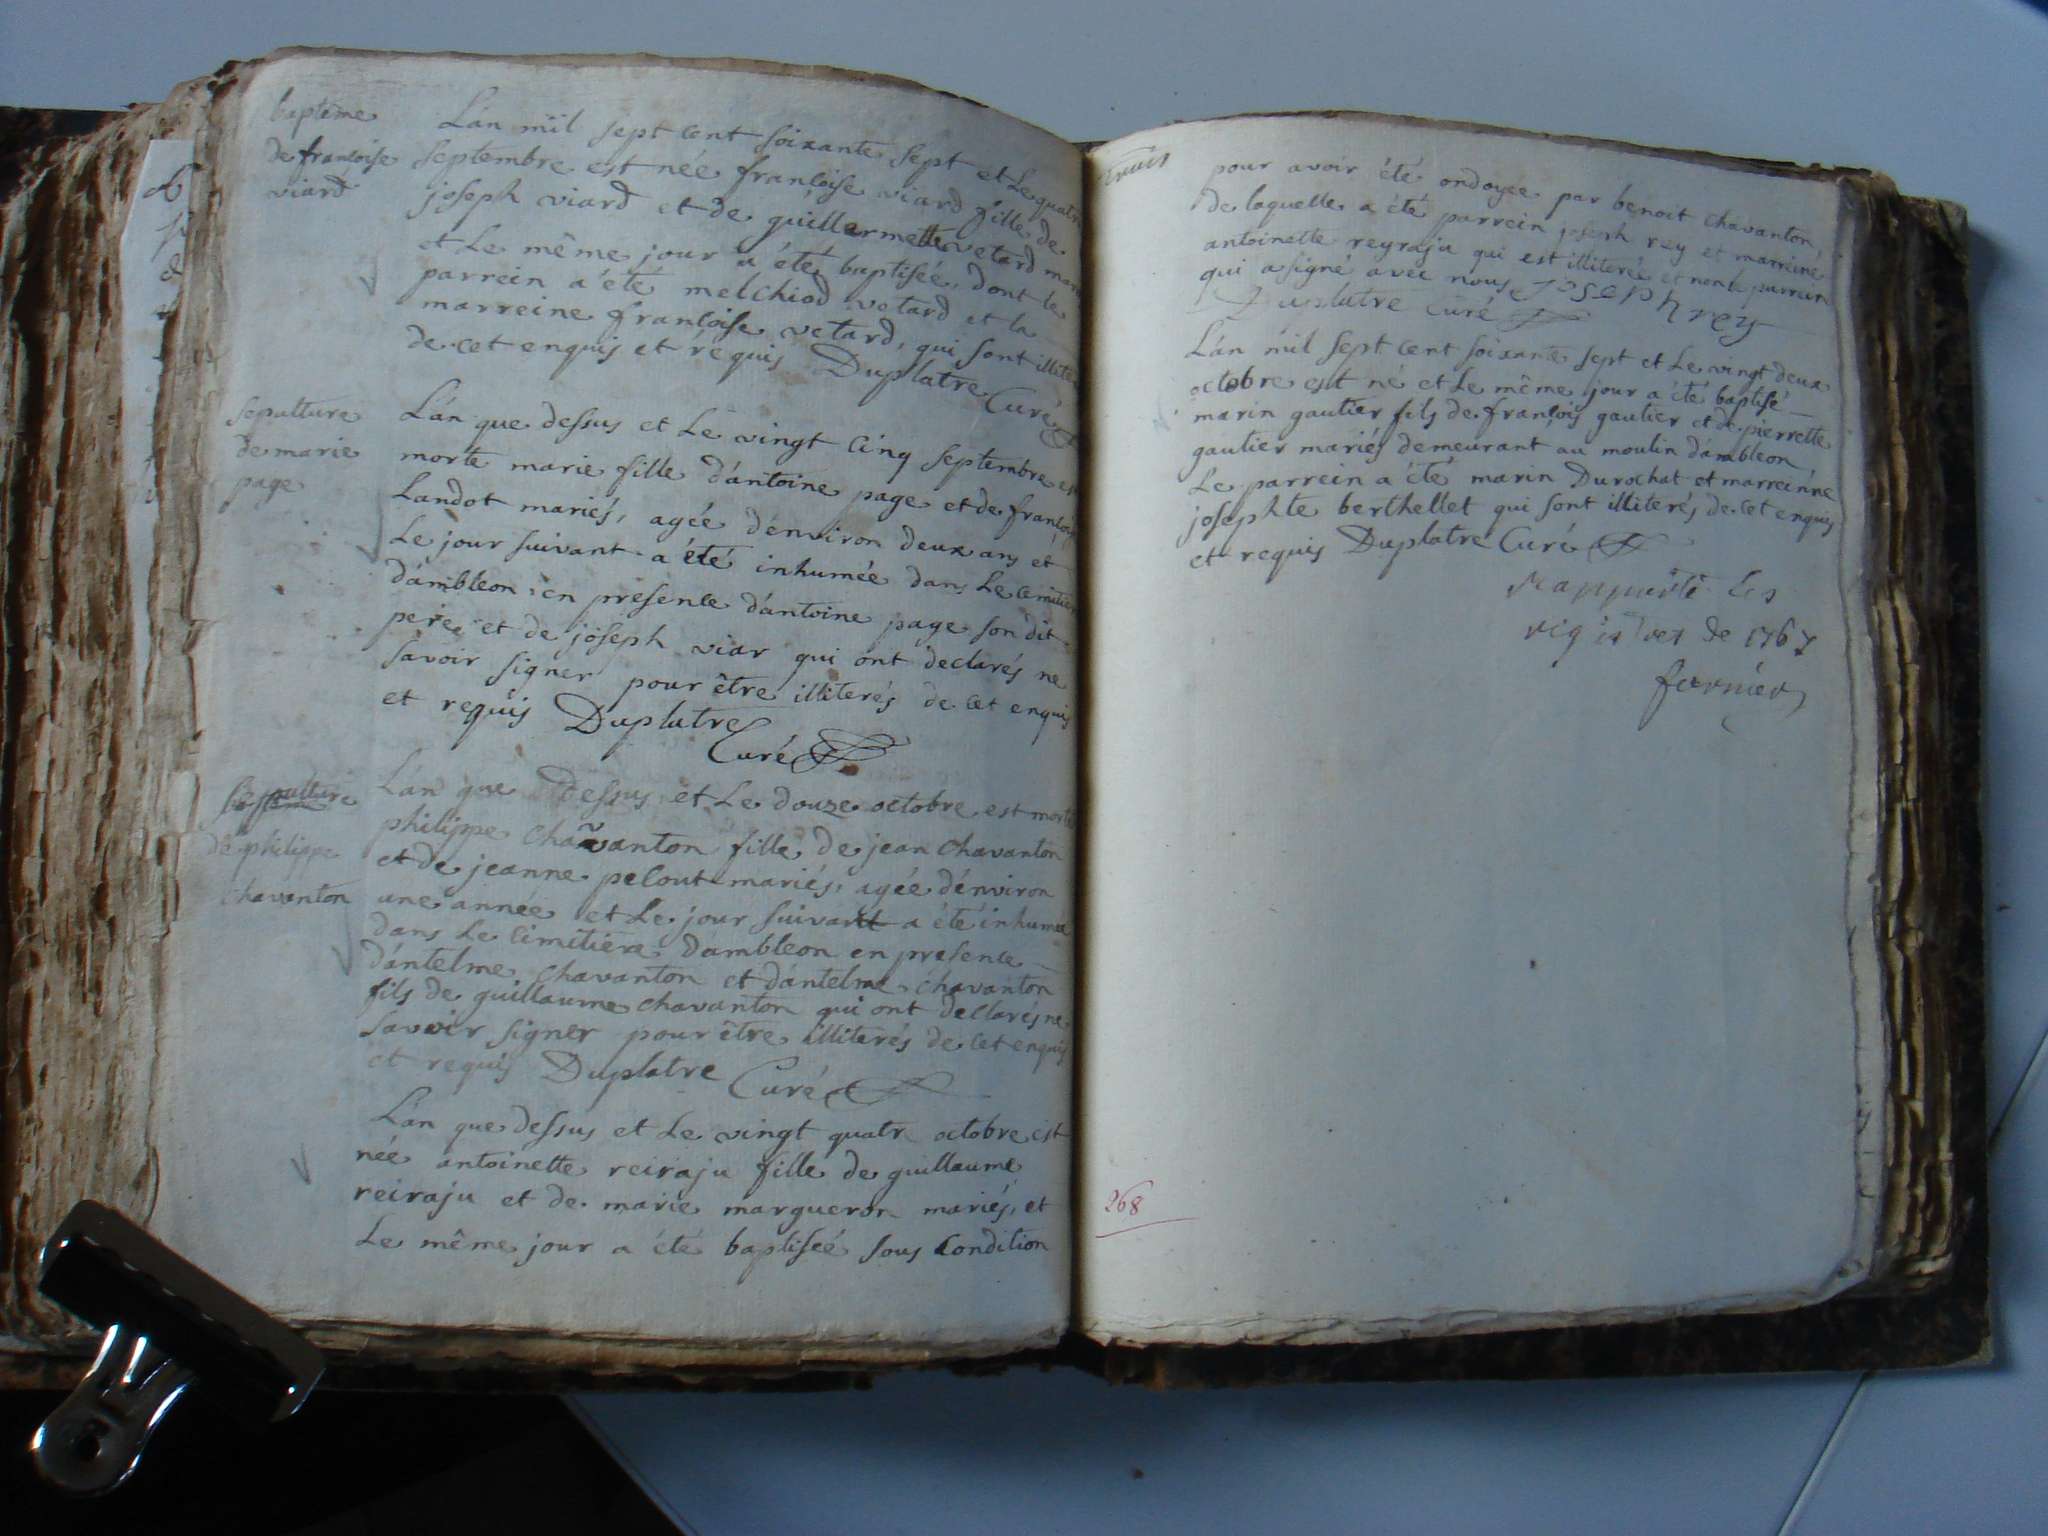 baptême
de françoise
viard
Lán mil sept cent soixante sept et le quatre
septembre est née françoise viard fille de
joseph viard et de guillermette vetard mariés
et Le même jour a été baptisée, dont le
parrein a été melchiod vetard et la
marreine françoise vetard, qui sont illiterés
de cet enquis et requis Duplatre Curé
sepulture
de marie
page
Lán que dessus et Le vingt cinq septembre est
morte marie fille dántoine page et de françoise
Landot mariés, agée dénviron deux ans et
Le jour suivant a été inhumée dans Le cimitiere
dámbleon en presence dántoine page son dit
pere et de joseph viar qui ont declarés ne
savoir signer pour être illiterés de cet enquis
et requis Duplatre
Curé
sepulture
de philippe
chavanton
Lán que dessus et Le douze octobre est morte
philippe chavanton fille de jean chavanton
et de jeanne pelout mariés, agée dénviron
une année et Le jour suivant a été inhumée
dans Le cimitiere dambleon en presence
dántelme chavanton et dántelme chavanton
fils de guillaume chavanton qui ont declarés ne
savoir signer pour être illiterés de cet enquis
et requis Duplatre Curé
Lán que dessus et Le vingt quatre octobre est
née antoinette reiraju fille de guillaume
reiraju et de marie margueron mariés, et
Le même jour a été baptiseé sous condition
pour avoir été ondoyee par benoit chavanton,
de laquelle a été parrein joseph rey et marreine
antoinette reyraju qui est illiterée et non le parrein
qui a signé avec nous joseph rey
Duplatre Curé
Lán mil sept cent soixante sept et Le vingt deux
octobre est né et Le même jour a été baptisé
marin gautier fils de françois gautier et de pierrette
gautier mariés demeurant au moulin dámbléon,
Le parrein a été marin Durochat et marreinne
josephte berthellet qui sont illiterés de cet enquis
et requis Duplatre Curé
Rapporté les
registres de 1767
268